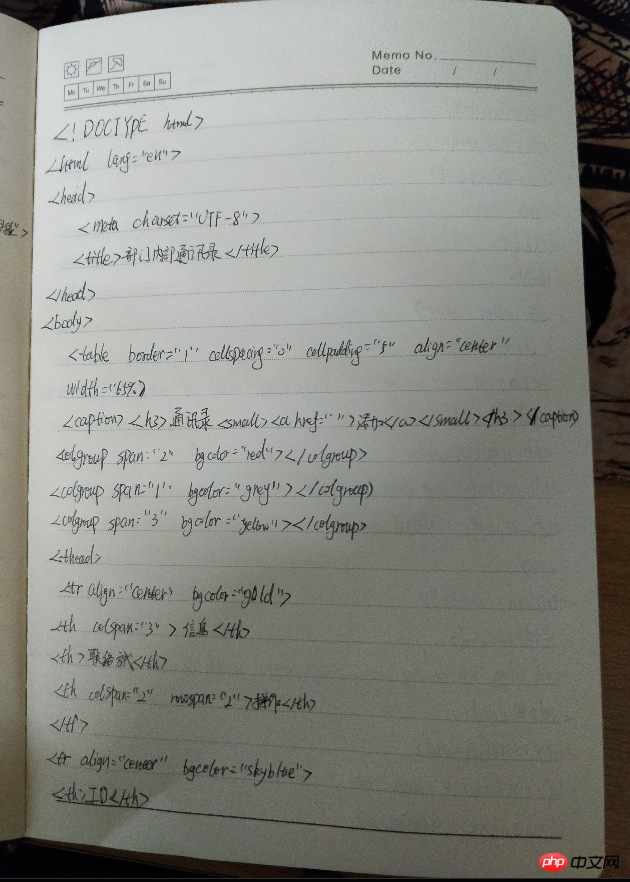 Memo No.
Date / /
Mo Tu We Th Fr Sa Su
<! DOCTYPE html>
<html lang="en">
<head>
<meta charset="UTF-8">
<title>部门内部通讯录</title>
</head>
<body>
<table border="1" cellspacing="0" cellpadding="5" align="center"
width="65%)
<caption><h3>通讯录<small><a href=" ">添加</a></small></h3></caption>
<colgroup span="2" bgcolor="red"></colgroup>
<colgroup span="1" bgcolor="grey"></colgroup>
<colgroup span="3" bgcolor="yellow"></colgroup>
<thead>
<tr align="center" bgcolor="gold">
<th colspan="3">信息</th>
<th>联络方式</th>
<th colspan="2" rowspan="2">操作</th>
</tr>
<tr align="center" bgcolor="skyblue">
<th>ID</th>
php 中文网